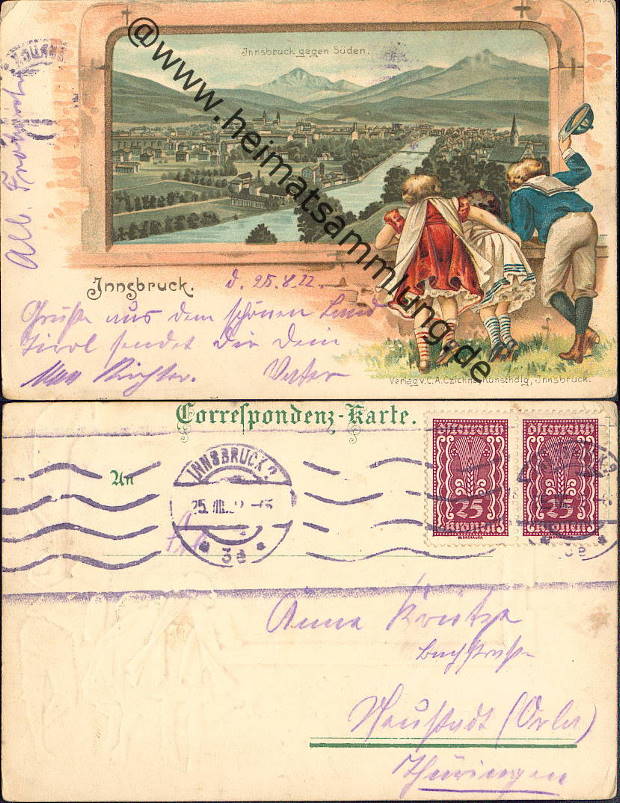 Innsbruck gegen Süden.
@www.heimatsammlung.de
Alb.
Innsbruck.
d. 25.8.22.
Grüße aus dem schönen Land
Tirol sendet Dir Dein
Max Richter. Vater
Verlag v. C. A. Czichna, Kunsthdlg, Innsbruck.
Correspondenz-Karte.
An
INNSBRUCK 2
25. VIII. 22
* 3e *
Österreich
25
Kronen
Österreich
25
Kronen
3e
Anna
Neustadt (Orla)
Thüringen